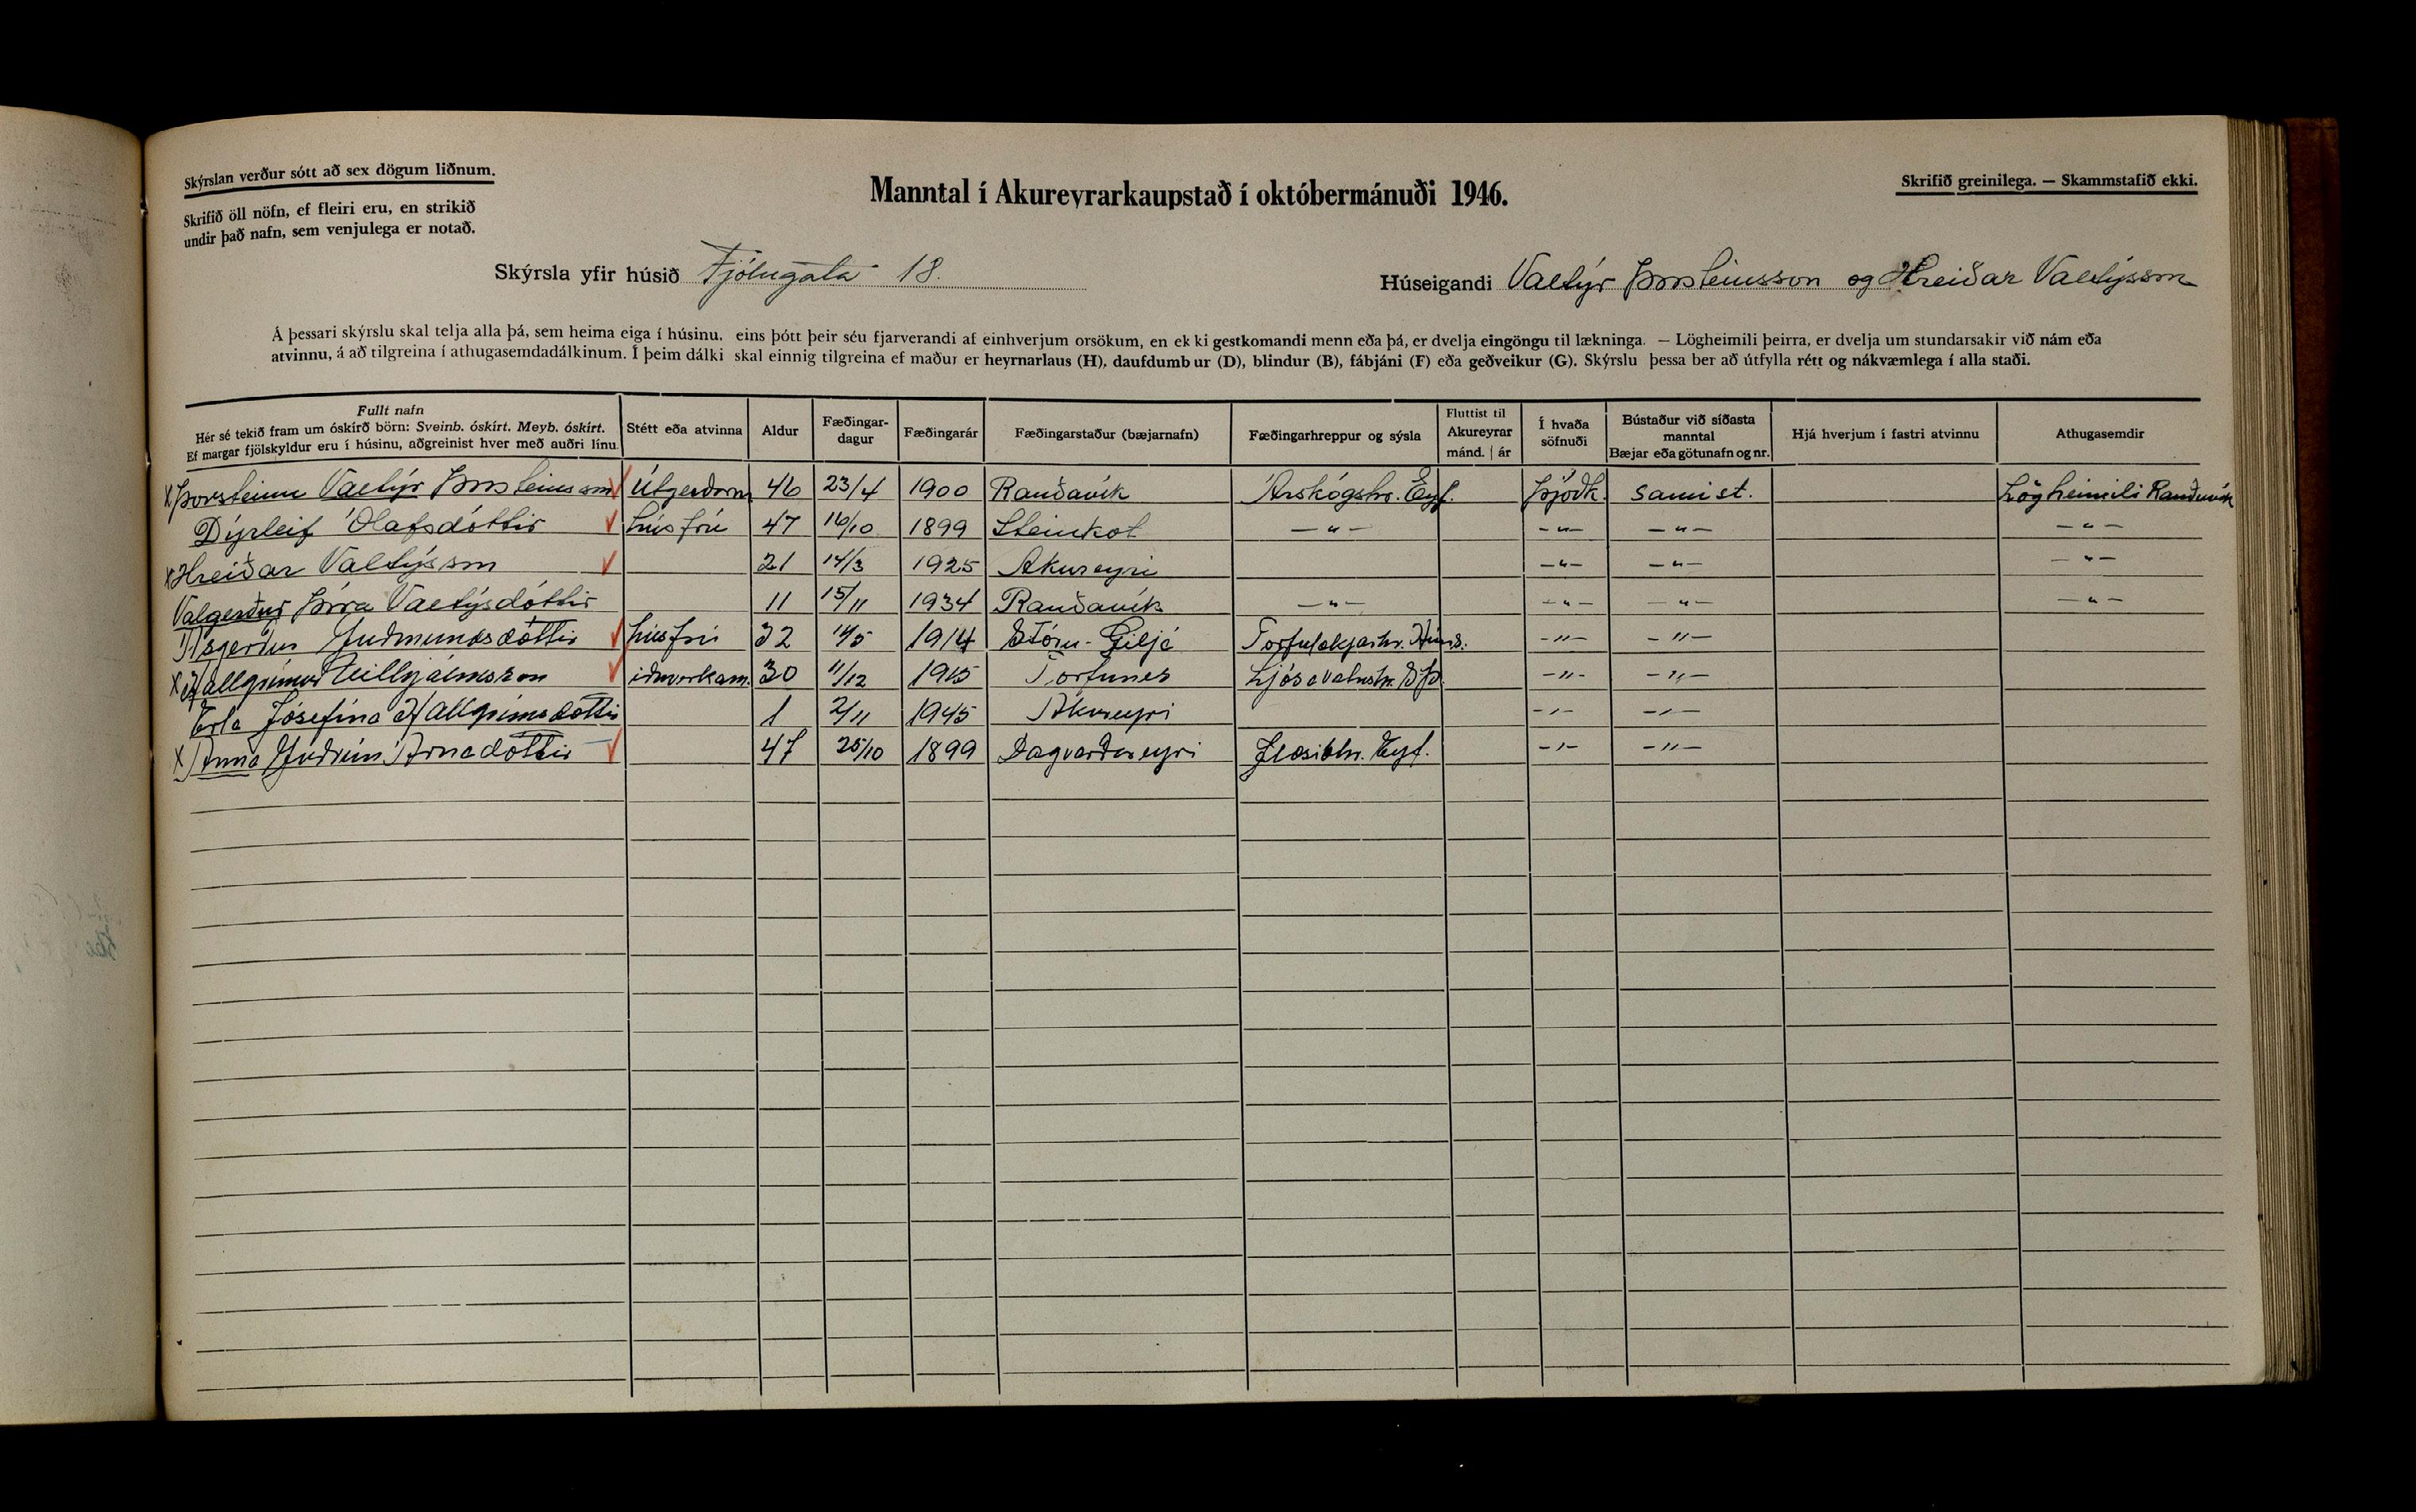 Skýrslan verður sótt að sex dögum liðnum.
Skrifið öll nöfn, ef fleiri eru, en strikið
undir það nafn, sem venjulega er notað.
Manntal í Akureyrarkaupstað í októbermánuði 1946.
Skrifið greinilega. — Skammstafið ekki.
Skýrsla yfir húsið Fjólugata 18.
Húseigandi Valtýr Þorsteinsson og Hreiðar Valtýsson
Á þessari skýrslu skal telja alla þá, sem heima eiga í húsinu, eins þótt þeir séu fjarverandi af einhverjum orsökum, en ekki gestkomandi menn eða þá, er dvelja eingöngu til lækninga. — Lögheimili þeirra, er dvelja um stundarsakir við nám eða
atvinnu, á að tilgreina í athugasemdadálkinum. Í þeim dálki skal einnig tilgreina ef maður er heyrnarlaus (H), daufdumbur (D), blindur (B), fábjáni (F) eða geðveikur (G). Skýrslu þessa ber að útfylla rétt og nákvæmlega í alla staði.
Fullt nafn
Hér sé tekið fram um óskírð börn: Sveinb. óskírt. Meyb. óskírt.
Ef margar fjölskyldur eru í húsinu, aðgreinist hver með auðri línu.
Stétt eða atvinna
Aldur
Fæðingar-
dagur
Fæðingarár
Fæðingarstaður (bæjarnafn)
Fæðingarhreppur og sýsla
Fluttist til
Akureyrar
mánd. | ár
Í hvaða
söfnuði
Bústaður við síðasta
manntal
Bæjar eða götunafn og nr.
Hjá hverjum í fastri atvinnu
Athugasemdir
x Þorsteinn Valtýr Þorsteinsson Útgerðarm 46 23/4 1900 Rauðavík Árskógshr. Eyf. Þjóðk. sami st. Lögheimili Rauðuvík
Dýrleif Ólafsdóttir húsfrú 47 16/10 1899 Steinkot —"— —"— —"— —"—
x Hreiðar Valtýsson 21 14/3 1925 Akureyri —"— —"— —"—
Valgerður Þóra Valtýsdóttir 11 15/11 1934 Rauðavík —"— —"— —"— —"—
Ásgerður Guðmundsdóttir húsfrú 32 14/5 1914 Stóru-Giljá Torfulækjarhr. Húns. —"— —"—
x Hallgrímur Vilhjálmsson iðnverkam. 30 11/12 1915 Torfunes Ljósavatnshr. S Þ —"— —"—
Erla Jósefína Hallgrímsdóttir 1 2/11 1945 Akureyri —"— —"—
x Anna Guðrún Árnadóttir 47 25/10 1899 Dagverðareyri Glæsibhr. Eyf. —"— —"—